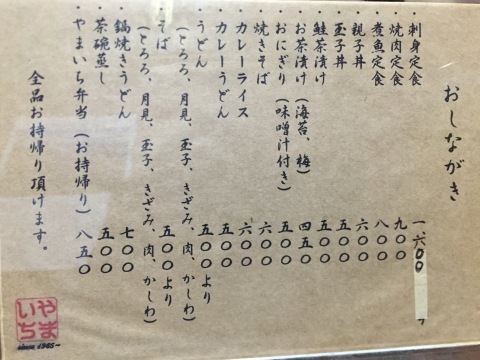 おしながき
・刺身定食 一、六〇〇
・焼肉定食 九〇〇
・煮魚定食 八〇〇
・親子丼 六〇〇
・玉子丼 五〇〇
・鮭茶漬け 五〇〇
・お茶漬け(海苔、梅) 四五〇
・おにぎり(味噌汁付き) 五〇〇
・焼きそば 六〇〇
・カレーライス 六〇〇
・カレーうどん 五〇〇
・うどん 五〇〇より
(とろろ、月見、玉子、きざみ、肉、かしわ)
・そば 五〇〇より
(とろろ、月見、玉子、きざみ、肉、かしわ)
・鍋焼きうどん 七〇〇
・茶碗蒸し 五〇〇
・やまいち弁当(お持帰り) 八五〇
全品お持帰り頂けます。
やまいち
since 1965~